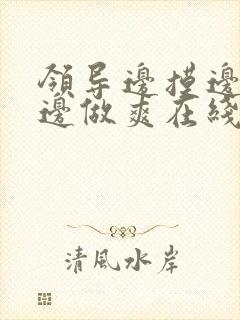 领导邊摸邊
邊做爽在綫
清風水岸